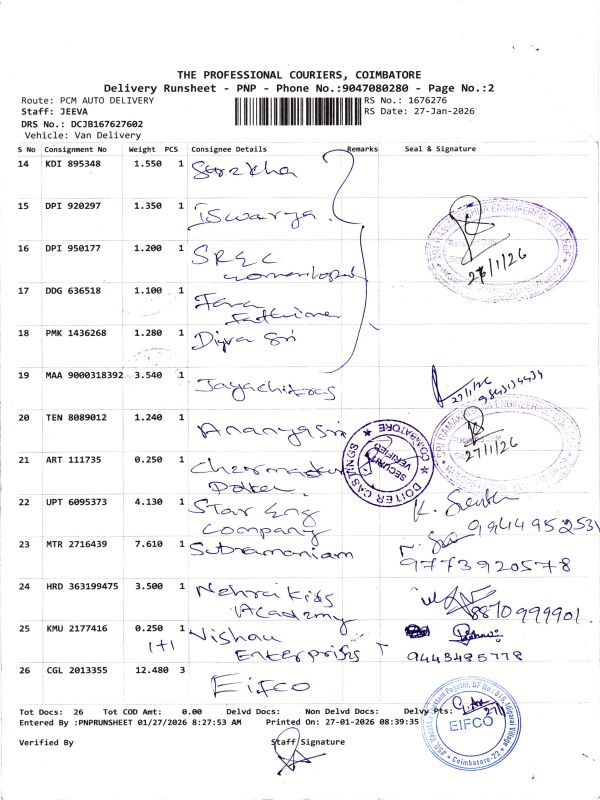 THE PROFESSIONAL COURIERS, COIMBATORE
Delivery Runsheet - PNP - Phone No.:9047080280 - Page No.:2
Route: PCM AUTO DELIVERY RS No.: 1676276
Staff: JEEVA RS Date: 27-Jan-2026
DRS No.: DCJB167627602
Vehicle: Van Delivery
S No Consignment No Weight PCS Consignee Details Remarks Seal & Signature
14 KDI 895348 1.550 1 Surekha
15 DPI 920297 1.350 1 iswarya
16 DPI 950177 1.200 1 SREC
27/1/26
17 DDG 636518 1.100 1 Fara
18 PMK 1436268 1.280 1 Divya Sri
19 MAA 9000318392 3.540 1 Jayachitras
27/1/26
20 TEN 8089012 1.240 1 Ananyasri
27/1/26
21 ART 111735 0.250 1
DOITER CASTINGS
SECURITY VERIFIED
COIMBATORE
22 UPT 6095373 4.130 1 Star Eng
Company
K.
23 MTR 2716439 7.610 1 Subramaniam
9773920578
24 HRD 363199475 3.500 1 Nehru Kids
Academy
8870999901
25 KMU 2177416 0.250 1 Vishnu
1+1 Enterprises
9443485778
26 CGL 2013355 12.480 3 Eifco
Tot Docs: 26 Tot COD Amt: 0.00 Delvd Docs: Non Delvd Docs: Delvy Pts:
Entered By :PNPRUNSHEET 01/27/2026 8:27:53 AM Printed On: 27-01-2026 08:39:35
EIFCO
Coimbatore-22
Verified By Staff Signature